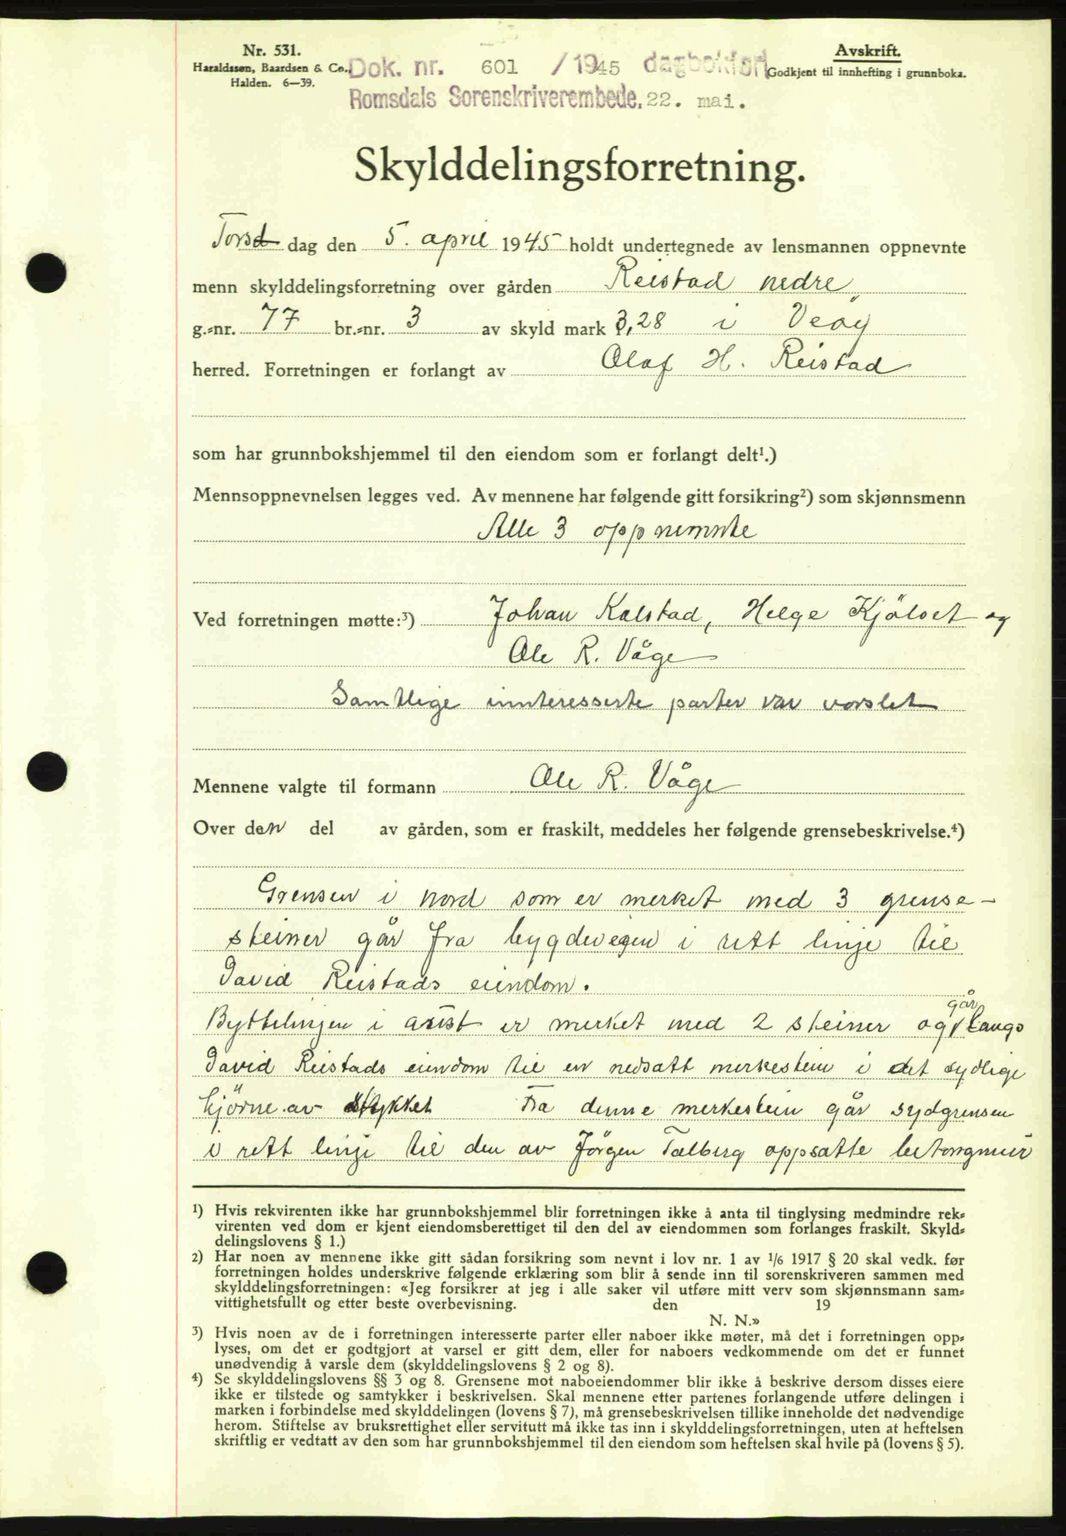 Nr. 531.
Haraldssøn, Baardsen & Co.,
Halden. 6—39.
Dok. nr. 601 /1945 dagbokført
Romsdals Sorenskriverembede, 22. mai.
Avskrift.
Godkjent til innhefting i grunnboka.
Skylddelingsforretning.
Torsd dag den 5. april 1945 holdt undertegnede av lensmannen oppnevnte
menn skylddelingsforretning over gården Reistad nedre
g.=nr. 77 br.=nr. 3 av skyld mark 3,28 i Veøy
herred. Forretningen er forlangt av Olaf H. Reistad
som har grunnbokshjemmel til den eiendom som er forlangt delt¹.)
Mennsoppnevnelsen legges ved. Av mennene har følgende gitt forsikring²) som skjønnsmenn
Alle 3 oppnemnte
Ved forretningen møtte:³) Johan Kalstad, Helge Kjölset og
Ole R. Våge
Samtlige innteresserte parter var varslet
Mennene valgte til formann Ole R. Våge
Over den del av gården, som er fraskilt, meddeles her følgende grensebeskrivelse.⁴)
Grensen i nord som er merket med 3 grense-
steiner går fra bygdevegen i rett linje til
David Reistads eiendom.
Byttelinjen i aust er merket med 2 steiner og går langs
David Reistads eiendom til en nedsatt merkestein i det sydlige
hjörne av stykket Fra denne merkestein går sydgrensen
i rett linje til den av Jörgen Talberg oppsatte betongmur
¹) Hvis rekvirenten ikke har grunnbokshjemmel blir forretningen ikke å anta til tinglysing medmindre rek=
virenten ved dom er kjent eiendomsberettiget til den del av eiendommen som forlanges fraskilt. Skyld=
delingslovens § 1.)
2) Har noen av mennene ikke gitt sådan forsikring som nevnt i lov nr. 1 av ¹/₆ 1917 § 20 skal vedk. før
forretningen holdes underskrive følgende erklæring som blir å sende inn til sorenskriveren sammen med
skylddelingsforretningen: «Jeg forsikrer at jeg i alle saker vil utføre mitt verv som skjønnsmann sam=
vittighetsfullt og etter beste overbevisning. den 19
N. N.»
³) Hvis noen av de i forretningen interesserte parter eller naboer ikke møter, må det i forretningen opp=
lyses, om det er godtgjort at varsel er gitt dem, eller for naboers vedkommende om det er funnet
unødvendig å varsle dem (skylddelingslovens § 2 og 8).
⁴) Se skylddelingslovens §§ 3 og 8. Grensene mot naboeiendommer blir ikke å beskrive dersom disses eiere
ikke er tilstede og samtykker i beskrivelsen. Skal mennene etter partenes forlangende utføre delingen i
marken i forbindelse med skylddelingen (lovens § 7), må grensebeskrivelsen tillike inneholde det nødvendige
herom. Stiftelse av bruksrettighet eller servitutt må ikke tas inn i skylddelingsforretningen, uten at heftelsen
skriftlig er vedtatt av den som har grunnbokshjemmel til den eiendom som heftelsen skal hvile på (lovens § 5).